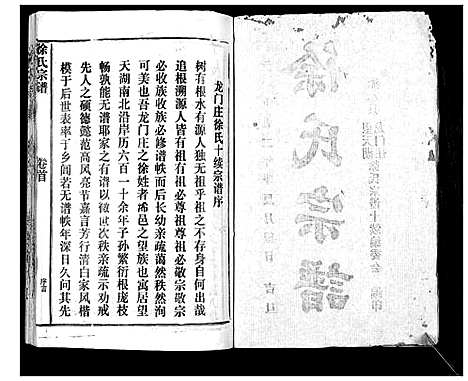 龙门庄徐氏十续宗谱序
树有根水有源人独无祖乎祖之不存身自何出哉
追根溯源人皆有祖有祖必尊祖尊祖必敬宗敬宗
必收族收族必修谱修谱修帙而后长幼亲疏蔼然秩然洵
可美也吾龙门庄之徐姓者邑之望族也寓居于
天湖南北沿岸历六百一十余年子孙繁衍根庞枝
畅孰能无谱耶家之有谱以世次秩亲疏示劝戒
先人之硕德懿范高风亮节嘉言芳行清白家风楷
模于后世表率于乡闾若无谱帙年深日久问其先
徐氏宗谱
卷首
序言
徐氏宗譜